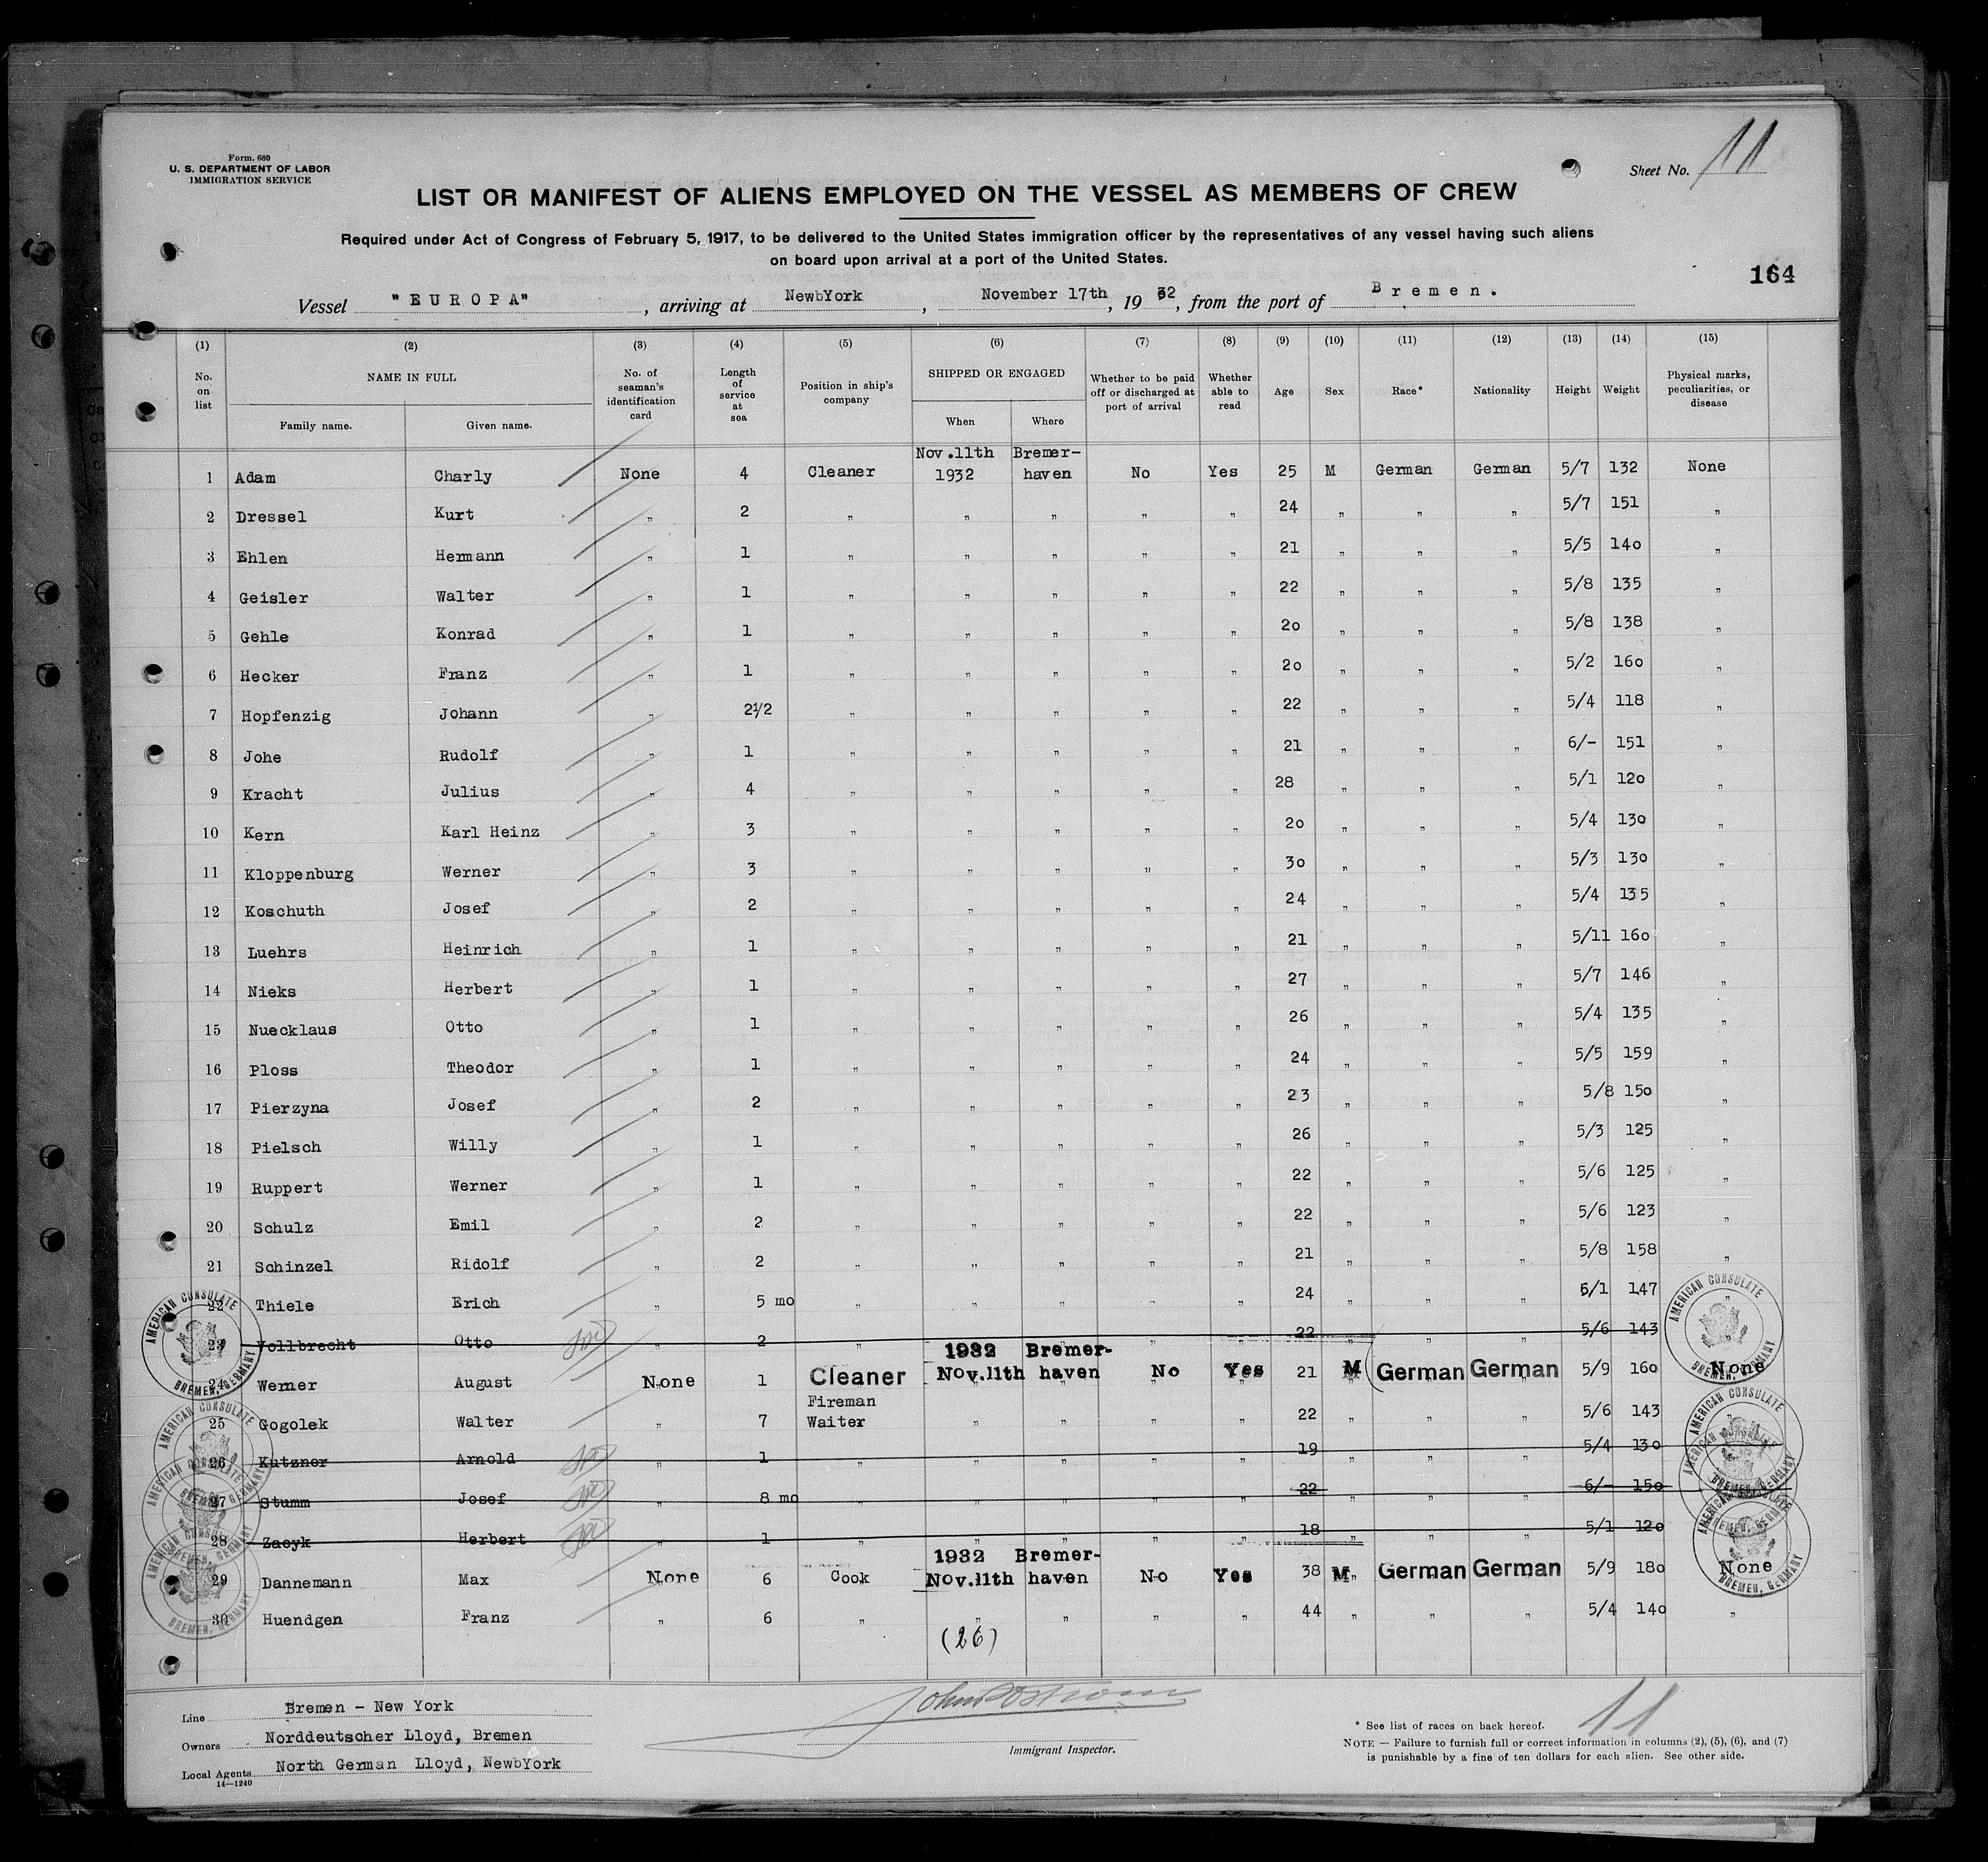 Form. 680
U. S. DEPARTMENT OF LABOR
IMMIGRATION SERVICE
Sheet No. 11
LIST OR MANIFEST OF ALIENS EMPLOYED ON THE VESSEL AS MEMBERS OF CREW
Required under Act of Congress of February 5, 1917, to be delivered to the United States immigration officer by the representatives of any vessel having such aliens
on board upon arrival at a port of the United States.
164
Vessel "EUROPA", arriving at NewbYork, November 17th, 19 32, from the port of Bremen.
(1) (2) (3) (4) (5) (6) (7) (8) (9) (10) (11) (12) (13) (14) (15)
No. on list NAME IN FULL Family name. Given name. No. of seaman's identification card Length of service at sea Position in ship's company SHIPPED OR ENGAGED When Where Whether to be paid off or discharged at port of arrival Whether able to read Age Sex Race* Nationality Height Weight Physical marks, peculiarities, or disease
Nov.11th Bremer-
1 Adam Charly None 4 Cleaner 1932 haven No Yes 25 M German German 5/7 132 None
2 Dressel Kurt " 2 " " " " " 24 " " " 5/7 151 "
3 Ehlen Hermann " 1 " " " " " 21 " " " 5/5 140 "
4 Geisler Walter " 1 " " " " " 22 " " " 5/8 135 "
5 Gehle Konrad " 1 " " " " " 20 " " " 5/8 138 "
6 Hecker Franz " 1 " " " " " 20 " " " 5/2 160 "
7 Hopfenzig Johann " 2½ " " " " " 22 " " " 5/4 118 "
8 Johe Rudolf " 1 " " " " " 21 " " " 6/- 151 "
9 Kracht Julius " 4 " " " " " 28 " " " 5/1 120 "
10 Kern Karl Heinz " 3 " " " " " 20 " " " 5/4 130 "
11 Kloppenburg Werner " 3 " " " " " 30 " " " 5/3 130 "
12 Koschuth Josef " 2 " " " " " 24 " " " 5/4 135 "
13 Luehrs Heinrich " 1 " " " " " 21 " " " 5/11 160 "
14 Nieks Herbert " 1 " " " " " 27 " " " 5/7 146 "
15 Nuecklaus Otto " 1 " " " " " 26 " " " 5/4 135 "
16 Ploss Theodor " 1 " " " " " 24 " " " 5/5 159 "
17 Pierzyna Josef " 2 " " " " " 23 " " " 5/8 150 "
18 Pielsch Willy " 1 " " " " " 26 " " " 5/3 125 "
19 Ruppert Werner " 1 " " " " " 22 " " " 5/6 125 "
20 Schulz Emil " 2 " " " " " 22 " " " 5/6 123 "
21 Schinzel Ridolf " 2 " " " " " 21 " " " 5/8 158 "
22 Thiele Erich " 5 mo " " " " " 24 " " " 6/1 147 "
23 Vollbrecht Otto " 2 " " " " " 22 " " " 5/6 143 "
1932 Bremer-
24 Werner August None 1 Cleaner Nov.11th haven No Yes 21 M German German 5/9 160 None
Fireman
25 Gogolek Walter " 7 Waiter " " " " 22 " " " 5/6 143 "
26 Kutzner Arnold " 1 " " " " " 19 " " " 5/4 130 "
27 Stumm Josef " 8 mo " " " " " 22 " " " 6/- 150 "
28 Zacyk Herbert " 1 " " " " " 18 " " " 5/1 120 "
1932 Bremer-
29 Dannemann Max None 6 Cook Nov.11th haven No Yes 38 M German German 5/9 180 None
30 Huendgen Franz " 6 " " " " " 44 " " " 5/4 140 "
(26)
AMERICAN CONSULATE BREMEN, GERMANY
AMERICAN CONSULATE BREMEN, GERMANY
AMERICAN CONSULATE BREMEN, GERMANY
AMERICAN CONSULATE BREMEN, GERMANY
AMERICAN CONSULATE BREMEN, GERMANY
AMERICAN CONSULATE BREMEN, GERMANY
AMERICAN CONSULATE BREMEN, GERMANY
AMERICAN CONSULATE BREMEN, GERMANY
Line Bremen - New York
Owners Norddeutscher Lloyd, Bremen
Local Agents North German Lloyd, NewbYork
14—1240
Immigrant Inspector.
11
* See list of races on back hereof.
NOTE — Failure to furnish full or correct information in columns (2), (5), (6), and (7)
is punishable by a fine of ten dollars for each alien. See other side.